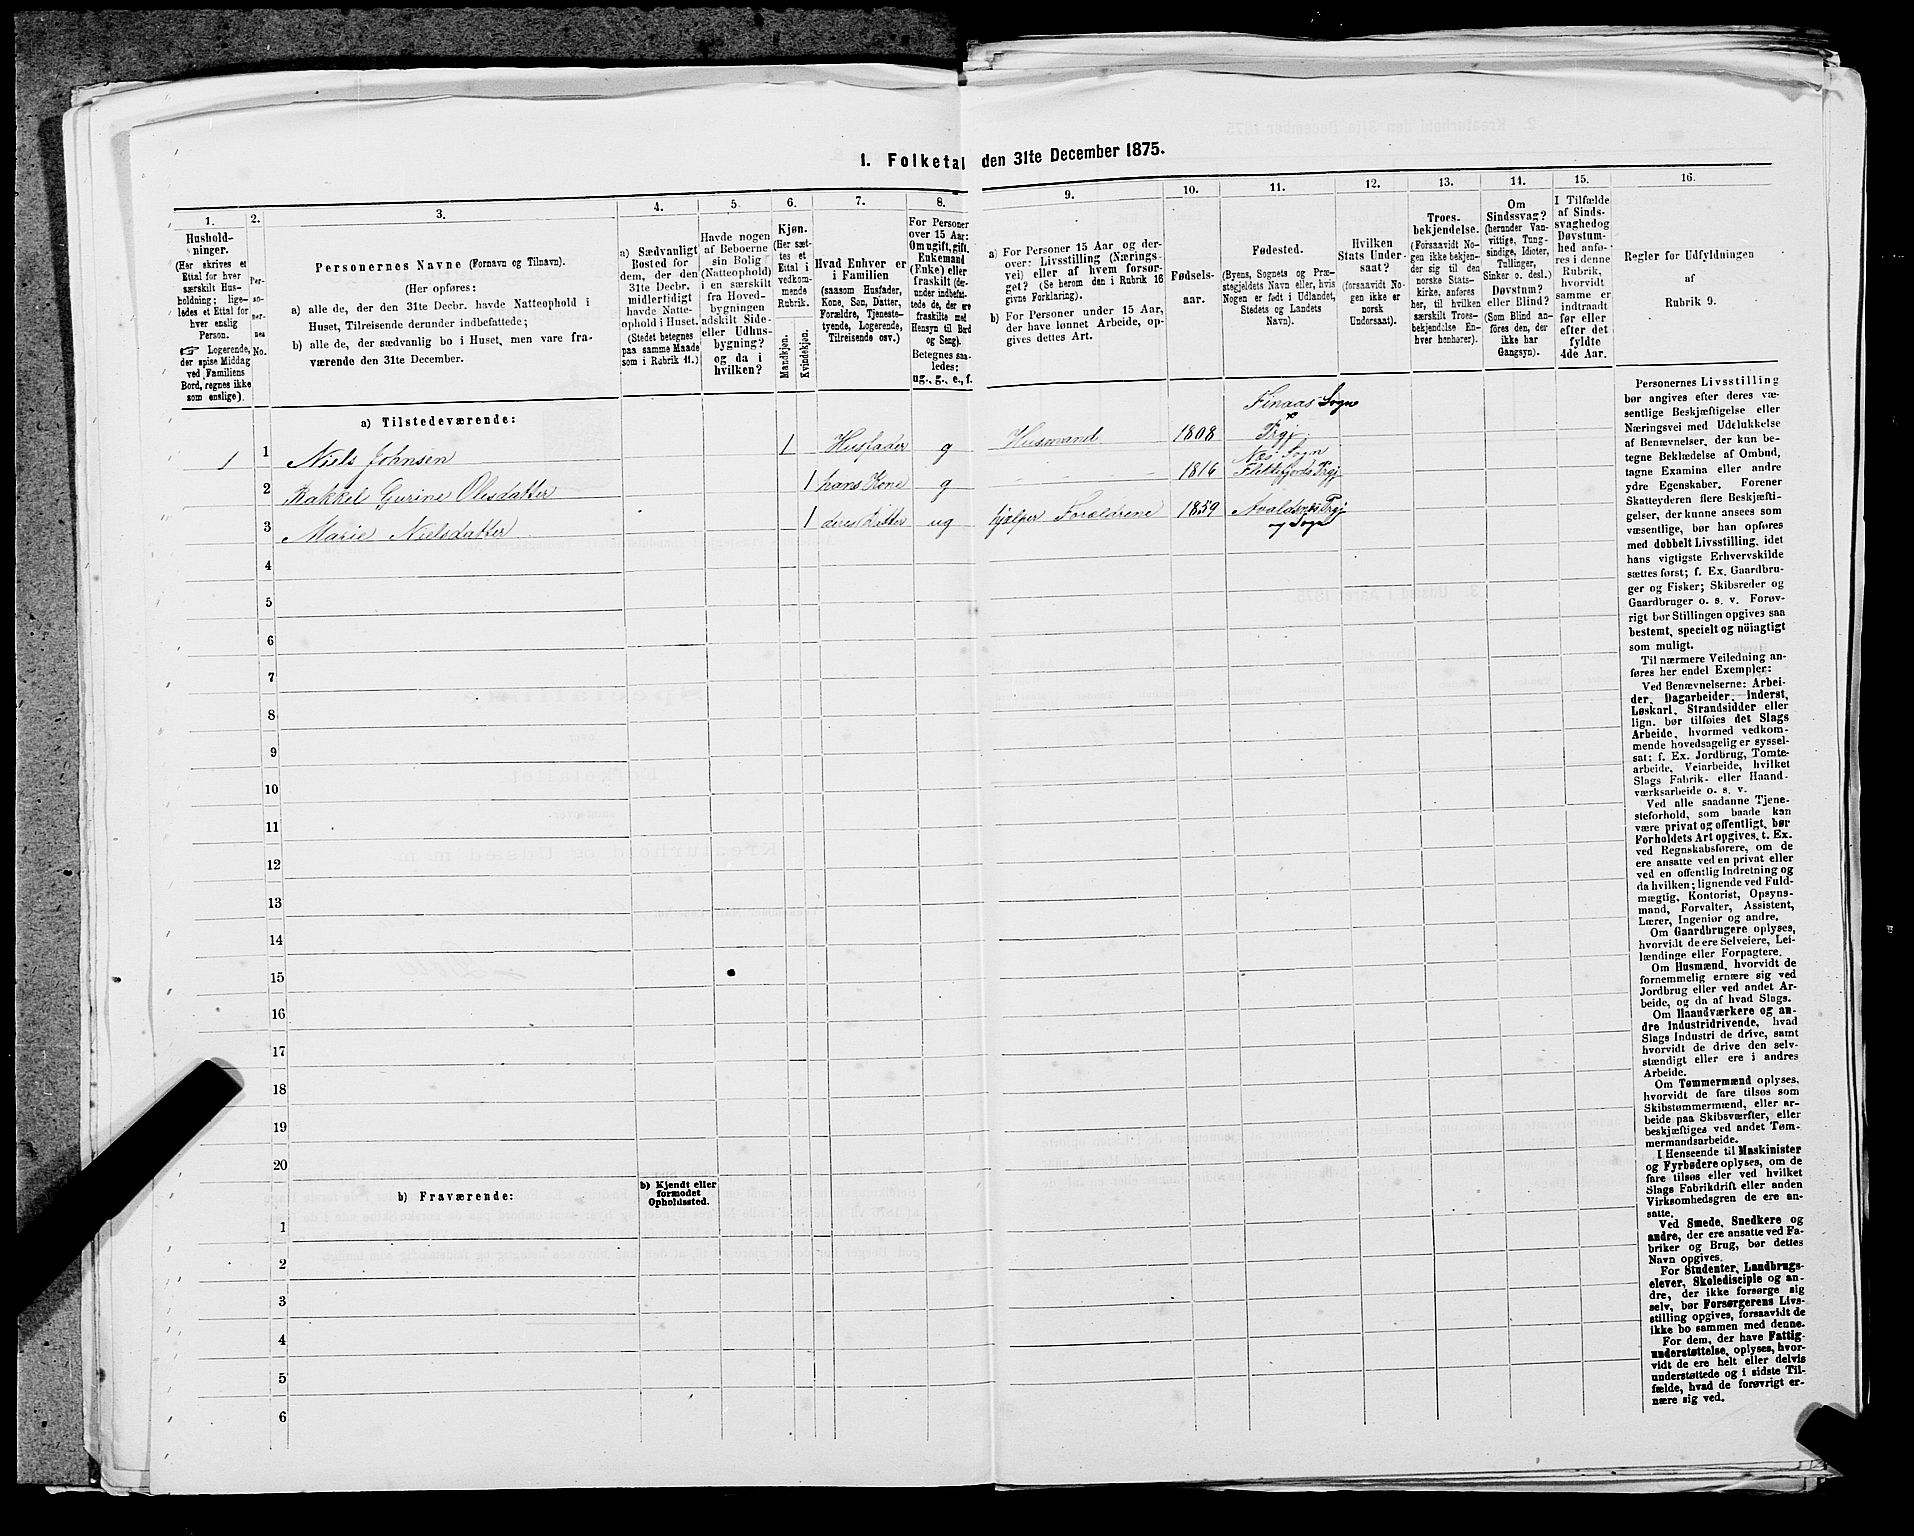 1. Folketal den 31te December 1875.
1.
2.
3.
4.
5.
6.
7.
8.
9.
10.
11.
12.
13.
14.
15.
16.
Hushold-
ninger.
(Her skrives et
Ettal for hver
særskilt Hus-
holdning; lige-
ledes et Ettal for
hver enslig
Person.
☞ Logerende,
der spise Middag
ved Familiens
Bord, regnes ikke
som enslige).
Per-
so-
ner-
nes
No.
Personernes Navne (Fornavn og Tilnavn).
(Her opføres:
a) alle de, der den 31te Decbr. havde Natteophold i
Huset, Tilreisende derunder indbefattede;
b) alle de, der sædvanlig bo i Huset, men vare fra-
værende den 31te December.
a) Sædvanligt
Bosted for
dem, der den
31te Decbr.
midlertidigt
havde Natte-
ophold i Huset.
(Stedet betegnes
paa samme Maade
som i Rubrik 11.)
Havde nogen
af Beboerne
sin Bolig
(Natteophold)
i en særskilt
fra Hoved-
bygningen
adskilt Side-
eller Udhus-
bygning?
og da i
hvilken?
Kjøn.
(Her sæt-
tes et
Ettal i
vedkom-
mende
Rubrik.
Mandkjøn.
Kvindekjøn.
Hvad Enhver er
i Familien
(saasom Husfader,
Kone, Søn, Datter,
Forældre, Tjeneste-
tyende, Logerende,
Tilreisende osv.)
For Personer
over 15 Aar:
Om ugift, gift,
Enkemand
(Enke) eller
fraskilt (der-
under indbefat-
tede de, der ere
fraskilte med
Hensyn til Bord
og Seng).
Betegnes saa-
ledes:
ug., g., e., f.
a) For Personer 15 Aar og der-
over: Livsstilling (Nærings-
vei) eller af hvem forsør-
get? (Se herom den i Rubrik 16
givne Forklaring).
b) For Personer under 15 Aar,
der have lønnet Arbeide, op-
gives dettes Art.
Fødsels-
aar.
Fødested.
(Byens, Sognets og Præ-
stegjeldets Navn eller, hvis
Nogen er født i Udlandet,
Stedets og Landets
Navn).
Hvilken
Stats Under-
saat?
(forsaavidt No-
gen ikke er
norsk
Undersaat).
Troes-
bekjendelse.
(Forsaavidt No-
gen ikke bekjen-
der sig til den
norske Stats-
kirke, anføres
her, til hvilken
særskilt Troes-
bekjendelse En-
hver henhører).
Om
Sindssvag?
(herunder Van-
vittige, Tung-
sindige, Idioter,
Tullinger,
Sinker o. desl.)
Døvstum?
eller Blind?
(Som Blind an-
føres den, der
ikke har
Gangsyn).
I Tilfælde
af Sinds-
svaghed og
Døvstum-
hed anfø-
res i denne
Rubrik,
hvorvidt
samme er
indtraadt
før eller
efter det
fyldte
4de Aar.
Regler for Udfyldningen
af
Rubrik 9.
a) Tilstedeværende:
Finaas Sogn
1 1 Niels Johnsen 1 Husfader g Husmand 1808 Prgj
Næs Sogn
2 Rakkel Gurine Olesdatter 1 hans Kone g 1816 Flekkefjords Prgj
3 Marie Nielsdatter 1 deres Datter ug hjælper Forældrene 1859 Avaldsnes Prgj
og Sogn
4
5
6
7
8
9
10
11
12
13
14
15
16
17
18
19
20
b) Fraværende:
b) Kjendt eller
formodet
Opholdssted.
1
2
3
4
5
6
Personernes Livsstilling
bør angives efter deres væ-
sentlige Beskjæftigelse eller
Næringsvei med Udelukkelse
af Benævnelser, der kun be-
tegne Beklædelse af Ombud,
tagne Examina eller andre
ydre Egenskaber. Forener
Skatteyderen flere Beskjæfti-
gelser, der kunne ansees som
væsentlige, bør han opføres
med dobbelt Livsstilling, idet
hans vigtigste Erhvervskilde
sættes først; f. Ex. Gaardbru-
ger og Fisker; Skibsreder og
Gaardbruger o. s. v. Forøv-
rigt bør Stillingen opgives saa
bestemt, specielt og nöiagtigt
som muligt.
Til nærmere Veiledning an-
føres her endel Exempler:
Ved Benævnelserne: Arbei-
der, Dagarbeider, Inderst,
Løskarl, Strandsidder eller
lign. bør tilføies det Slags
Arbeide, hvormed vedkom-
mende hovedsagelig er syssel-
sat; f. Ex. Jordbrug, Tomte-
arbeide, Veiarbeide, hvilket
Slags Fabrik- eller Haand-
værksarbeide o. s. v.
Ved alle saadanne Tjene-
steforhold, som baade kan
være privat og offentligt, bør
Forholdets Art opgives, t. Ex.
ved Regnskabsførere, om de
ere ansatte ved en privat eller
ved en offentlig Indretning og
da hvilken; lignende ved Fuld-
mægtig, Kontorist, Opsyns-
mand, Forvalter, Assistent,
Lærer, Ingeniør og andre.
Om Gaardbrugere oplyses,
hvorvidt de ere Selveiere, Lei-
lændinge eller Forpagtere.
Om Husmænd, hvorvidt de
fornemmelig ernære sig ved
Jordbrug eller ved andet Ar-
beide, og da af hvad Slags.
Om Haandværkere og an-
dre Industridrivende, hvad
Slags Industri de drive, samt
hvorvidt de drive den selv-
stændigt eller ere i andres
Arbeide.
Om Tømmermænd oplyses,
hvorvidt de fare tilsøs som
Skibstømmermænd, eller ar-
beide paa Skibsværfter, eller
beskjæftiges ved andet Tøm-
mermandsarbeide.
I Henseende til Maskinister
og Fyrbødere oplyses, om de
fare tilsøs eller ved hvilket
Slags Fabrikdrift eller anden
Virksomhedsgren de ere an-
satte.
Ved Smede, Snedkere og
andre, der ere ansatte ved Fa-
briker og Brug, bør dettes
Navn opgives.
For Studenter, Landbrugs-
elever, Skoledisciple og an-
dre, der ikke forsørge sig
selv, bør Forsørgerens Livs-
stilling opgives, forsaavidt de
ikke bo sammen med denne.
For dem, der have Fattig-
understøttelse, oplyses, hvor-
vidt de ere helt eller delvis
understøttede og i sidste Til-
fælde, hvad de forøvrigt er-
nære sig ved.